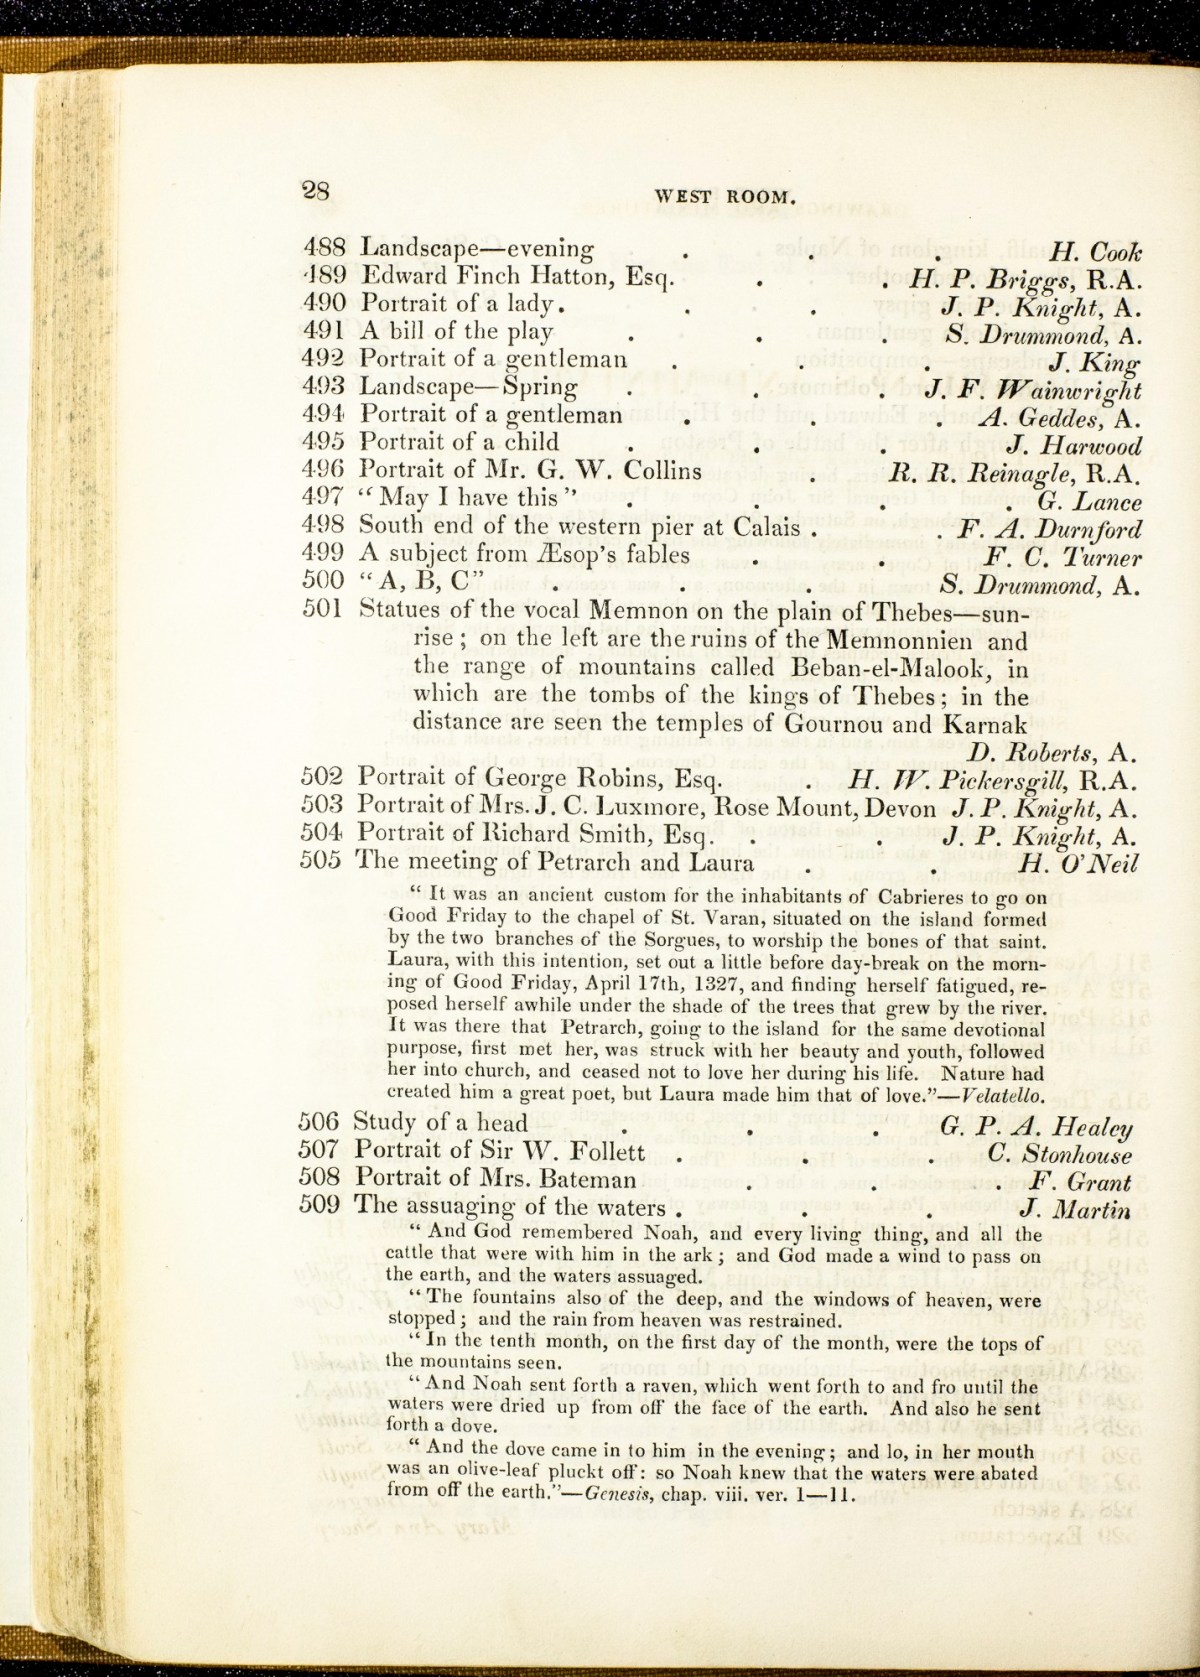 28 WEST ROOM.
488 Landscape—evening . . . H. Cook
489 Edward Finch Hatton, Esq. . . H. P. Briggs, R.A.
490 Portrait of a lady. . . J. P. Knight, A.
491 A bill of the play . . . S. Drummond, A.
492 Portrait of a gentleman . . . J. King
493 Landscape—Spring . . . J. F. Wainwright
494 Portrait of a gentleman . . . A. Geddes, A.
495 Portrait of a child . . . J. Harwood
496 Portrait of Mr. G. W. Collins . R. R. Reinagle, R.A.
497 "May I have this" . . . . G. Lance
498 South end of the western pier at Calais . . F. A. Durnford
499 A subject from Æsop's fables . . F. C. Turner
500 "A, B, C" . . . S. Drummond, A.
501 Statues of the vocal Memnon on the plain of Thebes—sun-
rise; on the left are the ruins of the Memnonnien and
the range of mountains called Beban-el-Malook, in
which are the tombs of the kings of Thebes; in the
distance are seen the temples of Gournou and Karnak
D. Roberts, A.
502 Portrait of George Robins, Esq. . H. W. Pickersgill, R.A.
503 Portrait of Mrs. J. C. Luxmore, Rose Mount, Devon J. P. Knight, A.
504 Portrait of Richard Smith, Esq. . . J. P. Knight, A.
505 The meeting of Petrarch and Laura . . H. O'Neil
"It was an ancient custom for the inhabitants of Cabrieres to go on
Good Friday to the chapel of St. Varan, situated on the island formed
by the two branches of the Sorgues, to worship the bones of that saint.
Laura, with this intention, set out a little before day-break on the morn-
ing of Good Friday, April 17th, 1327, and finding herself fatigued, re-
posed herself awhile under the shade of the trees that grew by the river.
It was there that Petrarch, going to the island for the same devotional
purpose, first met her, was struck with her beauty and youth, followed
her into church, and ceased not to love her during his life. Nature had
created him a great poet, but Laura made him that of love."—Velatello.
506 Study of a head . . . G. P. A. Healey
507 Portrait of Sir W. Follett . . . C. Stonhouse
508 Portrait of Mrs. Bateman . . . F. Grant
509 The assuaging of the waters . . . J. Martin
"And God remembered Noah, and every living thing, and all the
cattle that were with him in the ark; and God made a wind to pass on
the earth, and the waters assuaged.
"The fountains also of the deep, and the windows of heaven, were
stopped; and the rain from heaven was restrained.
"In the tenth month, on the first day of the month, were the tops of
the mountains seen.
"And Noah sent forth a raven, which went forth to and fro until the
waters were dried up from off the face of the earth. And also he sent
forth a dove.
"And the dove came in to him in the evening; and lo, in her mouth
was an olive-leaf pluckt off: so Noah knew that the waters were abated
from off the earth."—Genesis, chap. viii. ver. 1—11.